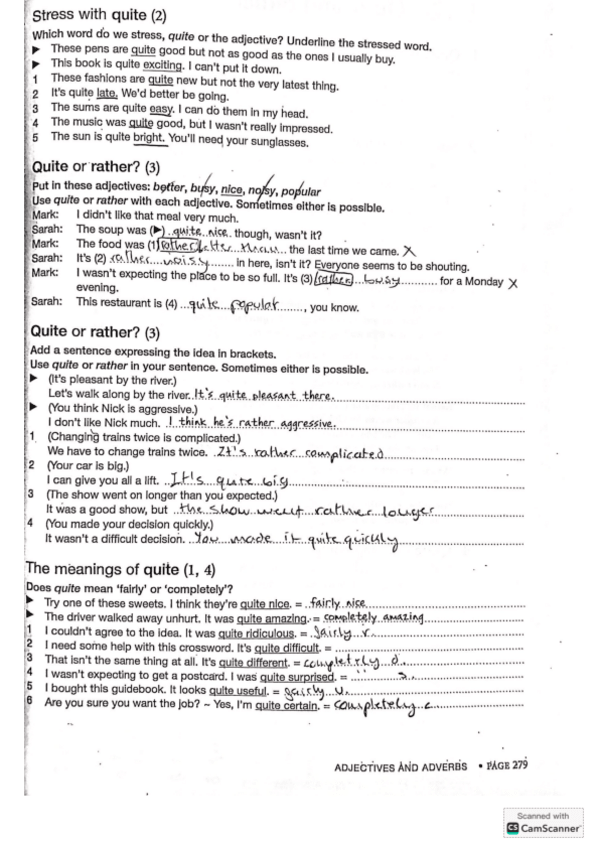 Stress with quite (2)
Which word do we stress, quite or the adjective? Underline the stressed word.
▶ These pens are quite good but not as good as the ones I usually buy.
▶ This book is quite exciting. I can't put it down.
1 These fashions are quite new but not the very latest thing.
2 It's quite late. We'd better be going.
3 The sums are quite easy. I can do them in my head.
4 The music was quite good, but I wasn't really impressed.
5 The sun is quite bright. You'll need your sunglasses.
Quite or rather? (3)
Put in these adjectives: better, busy, nice, noisy, popular
Use quite or rather with each adjective. Sometimes either is possible.
Mark: I didn't like that meal very much.
Sarah: The soup was (▶) quite nice though, wasn't it?
Mark: The food was (1) rather better than the last time we came. X
Sarah: It's (2) rather noisy in here, isn't it? Everyone seems to be shouting.
Mark: I wasn't expecting the place to be so full. It's (3) rather busy for a Monday X
evening.
Sarah: This restaurant is (4) quite popular, you know.
Quite or rather? (3)
Add a sentence expressing the idea in brackets.
Use quite or rather in your sentence. Sometimes either is possible.
▶ (It's pleasant by the river.)
Let's walk along by the river. It's quite pleasant there.
▶ (You think Nick is aggressive.)
I don't like Nick much. I think he's rather aggressive.
1 (Changing trains twice is complicated.)
We have to change trains twice. It's rather complicated
2 (Your car is big.)
I can give you all a lift. It's quite big
3 (The show went on longer than you expected.)
It was a good show, but the show went rather longer
4 (You made your decision quickly.)
It wasn't a difficult decision. You made it quite quickly
The meanings of quite (1, 4)
Does quite mean 'fairly' or 'completely'?
▶ Try one of these sweets. I think they're quite nice. = fairly nice
▶ The driver walked away unhurt. It was quite amazing. = completely amazing
1 I couldn't agree to the idea. It was quite ridiculous. = fairly r.
2 I need some help with this crossword. It's quite difficult. =
3 That isn't the same thing at all. It's quite different. = completely d.
4 I wasn't expecting to get a postcard. I was quite surprised. = " s.
5 I bought this guidebook. It looks quite useful. = fairly u.
6 Are you sure you want the job? ~ Yes, I'm quite certain. = completely c
ADJECTIVES AND ADVERBS • PAGE 279
Scanned with
CS CamScanner